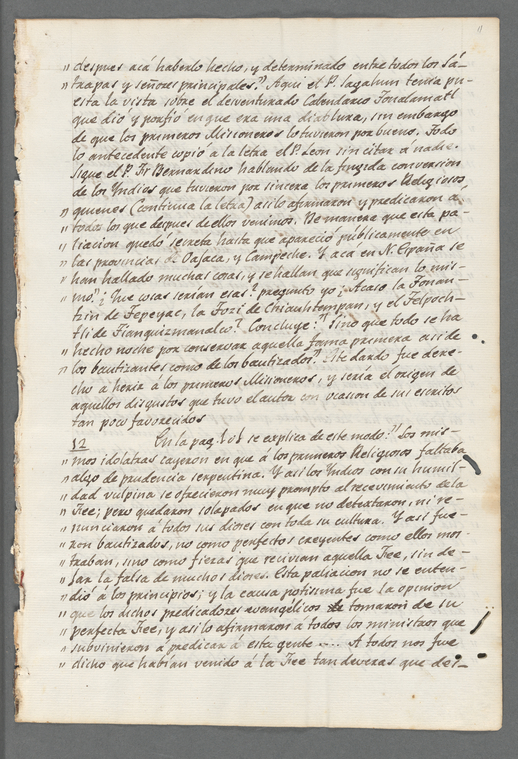 11
" despues acá haberlo hecho, y determinado entre todos los Sá-
" trapas y señores principales." Aqui el P. Sagahum tenia pu-
esta la vista sobre el desventurado Calendario Tonalamatl
que dió y porfió en que era una diablura, sin embargo
de que los primeros Missioneros lo tuvieron por bueno. Todo
lo antecedente copió á la letra el P. Leon sin citar á nadie.
Sigue el P. Fr Bernardino hablando de la fingida conversion
de los Yndios que tuvieron por sincera los primeros Religiosos,
" quienes (continua la letra) asi lo afirmaron y predicaron á
" todos los que despues de ellos venimos. De manera que esta pa-
" liacion quedó secreta hasta que apareció publicamente en
" las provincias de Oajaca, y Campeche. Y acá en N. España se
" han hallado muchas cosas, y se hallan que significan lo mis-
" mo. ¿Que cosas serian esas? pregunto yo; ¿Acaso la Tonan-
tzin de Tepeyac, la Tozi de Chiauhtempan, y el Telpoch-
tli de Tianquizmanalco? Concluye: "Sino que todo se ha
" hecho noche por conservar aquella fama primera asi de
" los bautizantes como de los bautizados." Este dardo fue dere-
cho á herir á los primeros Missioneros, y seria el origen de
aquellos disgustos que tuvo el autor con ocasion de sus escritos
tan poco favorecidos
12 En la pag. 101 se explica de este modo: "Los mis-
" mos idolatras cayeron en que á los primeros Religiosos faltaba
" algo de prudencia serpentina. Y asi los Yndios con su humil-
" dad vulpina se ofrecieron muy prompto al recevimiento de la
" Fee; pero quedaron solapados en que no detextaron, ni re-
" nunciaron á todos sus dioses con toda su cultura. Y asi fue-
" ron bautizados, no como perfectos creyentes como ellos mos-
" traban, sino como fieras que recivian aquella Fee, sin de-
" jar la falsa de muchos dioses. Esta paliacion no se enten-
" dió á los principios; y la causa potissima fue la opinion
" que los dichos predicadores evangélicos tomaron de su
" perfecta Fee; y asi lo afirmaron á todos los ministros que
" subvinieron á predicar á esta gente .... A todos nos fue
" dicho que habian venido á la Fee tan deveras que des-